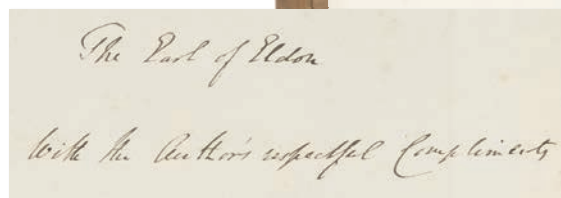 The Earl of Eldon
With the Author's respectful Compliments